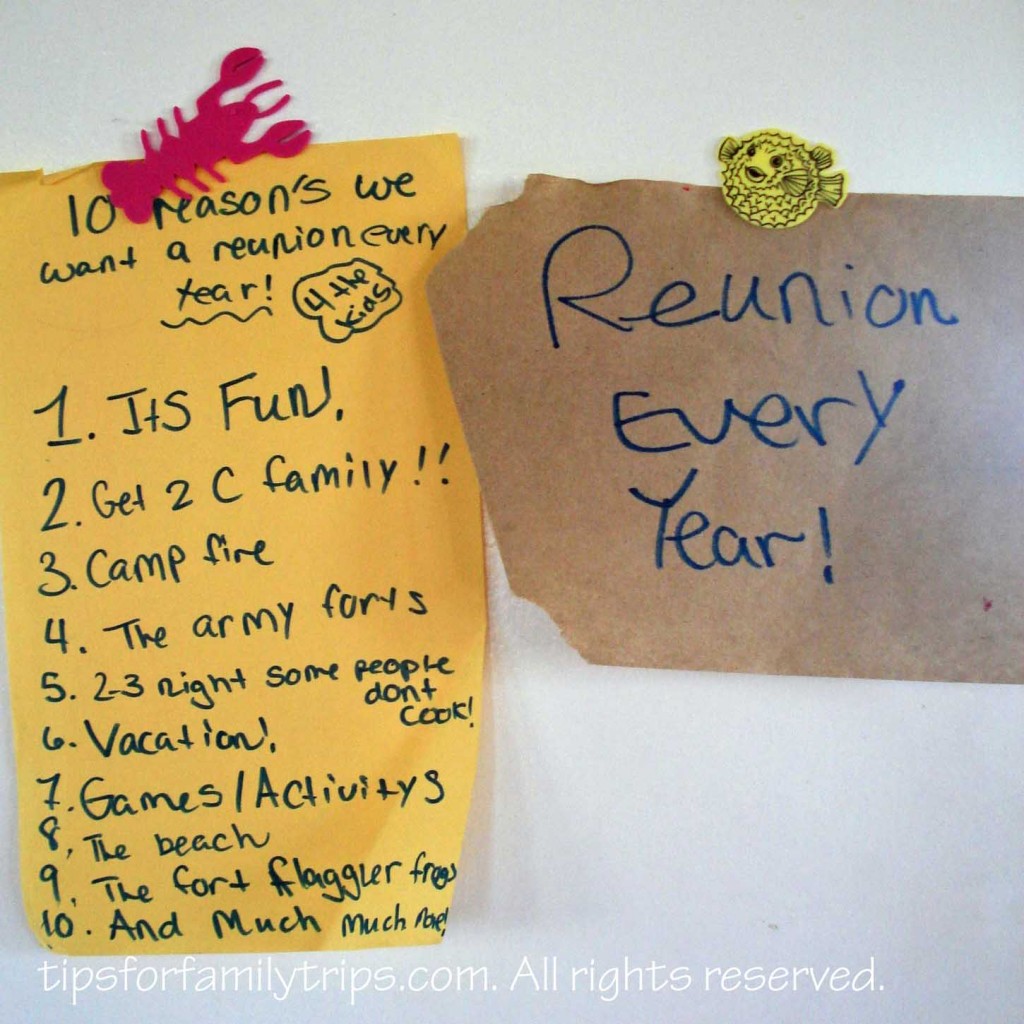 10 reason's we
want a reunion every
year!
4 the
kids
1. Its Fun!
2. Get 2 C family!!
3. Camp fire
4. The army forts
5. 2-3 night some people
dont
cook!
6. Vacation!
7. Games/Activitys
8. The beach
9. The fort flaggler frogs
10. And Much much more!
Reunion
Every
Year!
tipsforfamilytrips.com. All rights reserved.